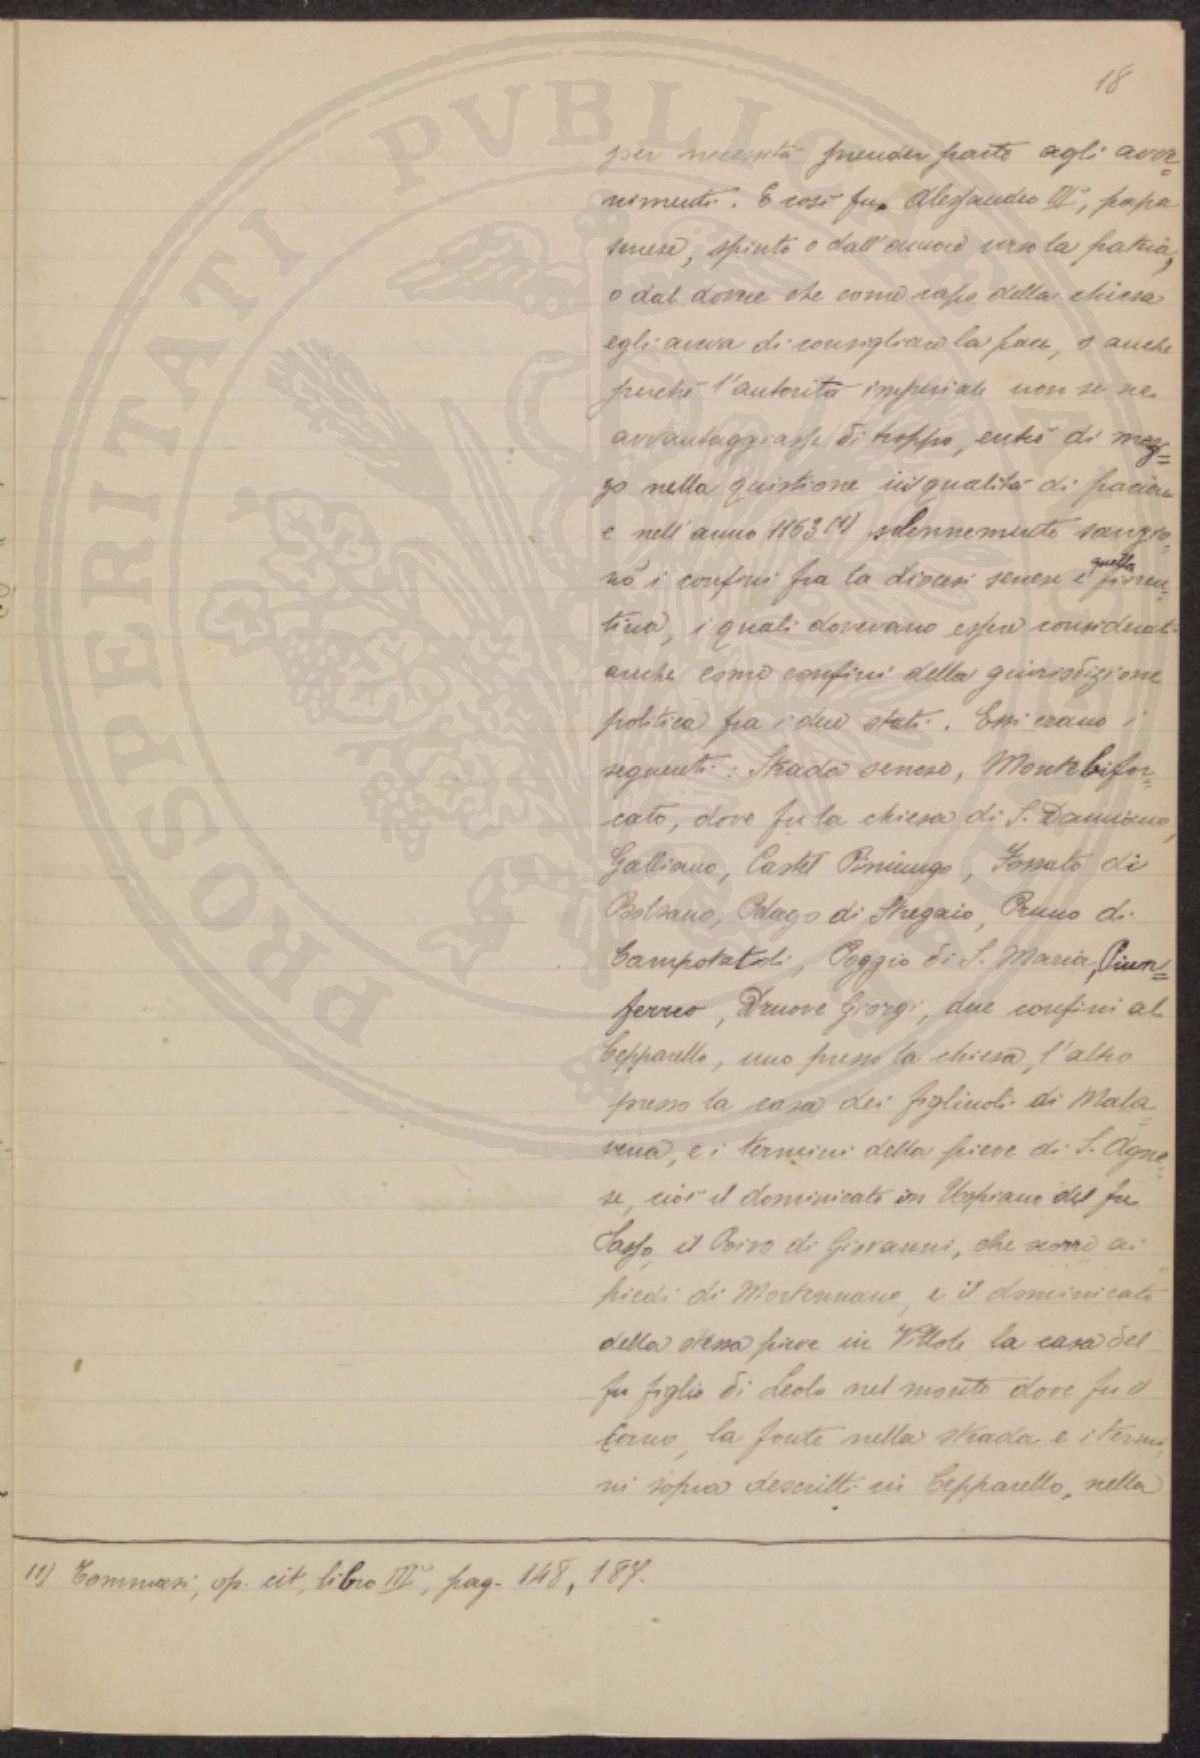 18
per necessità prender parte agli avve=
nimenti. E così fu. Alessandro III°, papa
senese, spinto o dall'amore verso la patria,
o dal dovere che come capo della chiesa
egli aveva di consigliare la pace, o anche
perché l'autorità imperiale non se ne
avvantaggiasse di troppo, entrò di mez=
zo nella quistione in qualità di paciere
e nell'anno 1163 (1) solennemente sanzio=
nò i confini fra la diocesi senese e quella fioren=
tina, i quali dovevano essere considerati
anche come confini della giurisdizione
politica fra i due stati. Essi erano i
seguenti: Strada senese, Montebifor=
cato, dove fu la chiesa di S. Damiano,
Galliano, Castel Fossato di
Bolsano, di Stregaio, Pruno di
Poggio di S. Maria,
ferreo, Giorgi, due confini al
Cepparello, uno presso la chiesa, l'altro
presso la casa dei figliuoli di Mala=
vena, e i termini della pieve di S. Agne=
se, cioè il dominicato in Uspiano del fu
Sasso, il Rivo di Giovanni, che scorre ai
piedi di Mortennano, e il dominicato
della stessa pieve in la casa del
fu figlio di Leolo nel monte dove fu il
la fonte nella strada e i termi=
ni sopra descritti in Cepparello, nella
(1) Tommasi, op. cit, libro III°, pag. 148, 187.
PROSPERITATI PVBLICAE